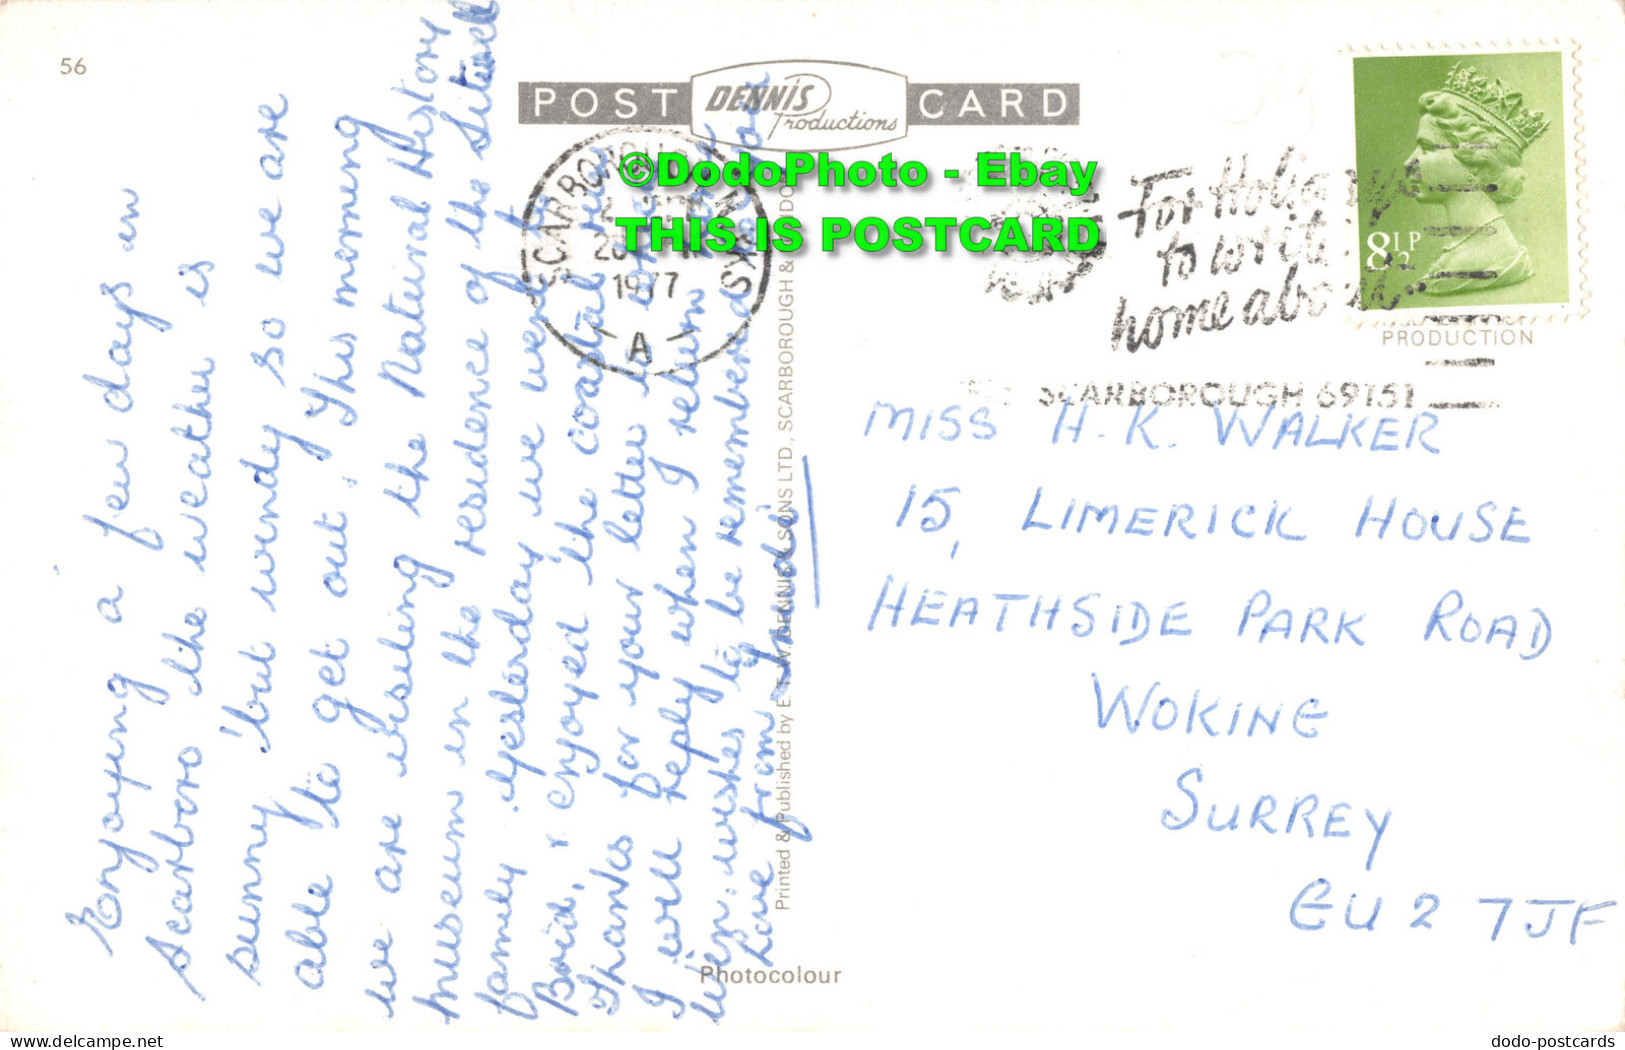 56
POST DENNIS Productions CARD
©DodoPhoto - Ebay
THIS IS POSTCARD
SCARBOROUGH
1977
A
For Holidays
to write
home about
SCARBOROUGH 69151
8½P
PRODUCTION
Enjoying a few days in
Scarboro the weather is
sunny but windy so we are
able to get out. This morning
we are visiting the Natural History
museum in the residence of the Sitwell
family. Yesterday we went to
Brid, & enjoyed the coastal
Thanks for your letter to
I will reply when I return
wishes to be remembered to you
Love from
Printed & Published by E. T. W. DENNIS & SONS LTD., SCARBOROUGH &
Photocolour
MISS H. K. WALKER
15, LIMERICK HOUSE
HEATHSIDE PARK ROAD
WOKING
SURREY
GU2 7JF
www.delcampe.net
dodo-postcards